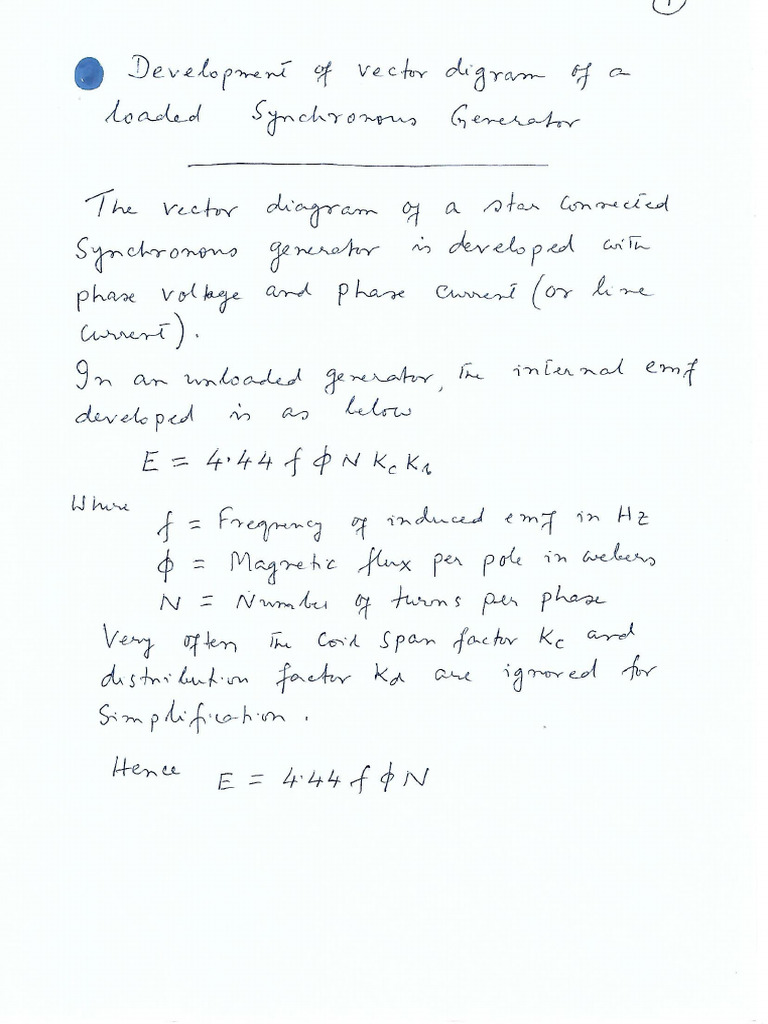 1
Development of vector digram of a
loaded Synchronous Generator
The vector diagram of a star connected
Synchronous generator is developed with
phase voltage and phase current (or line
current).
In an unloaded generator, the internal emf
developed is as below
E = 4.44 f ϕ N Kc Kd
Where
f = Frequency of induced emf in Hz
ϕ = Magnetic flux per pole in webers
N = Number of turns per phase
Very often the coil span factor Kc and
distribution factor Kd are ignored for
simplification.
Hence E = 4.44 f ϕ N